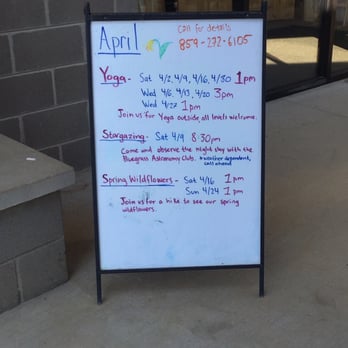 April
Call for details
859-272-6105
Yoga - Sat 4/2, 4/9, 4/16, 4/30 1pm
Wed 4/6, 4/13, 4/20 3pm
Wed 4/27 1pm
Join us for Yoga outside, all levels welcome.
Stargazing - Sat 4/9 8:30pm
Come and observe the night sky with the
Bluegrass Astronomy Club. *weather dependent,
call ahead
Spring Wildflowers - Sat 4/16 1pm
Sun 4/24 1pm
Join us for a hike to see our spring
wildflowers.